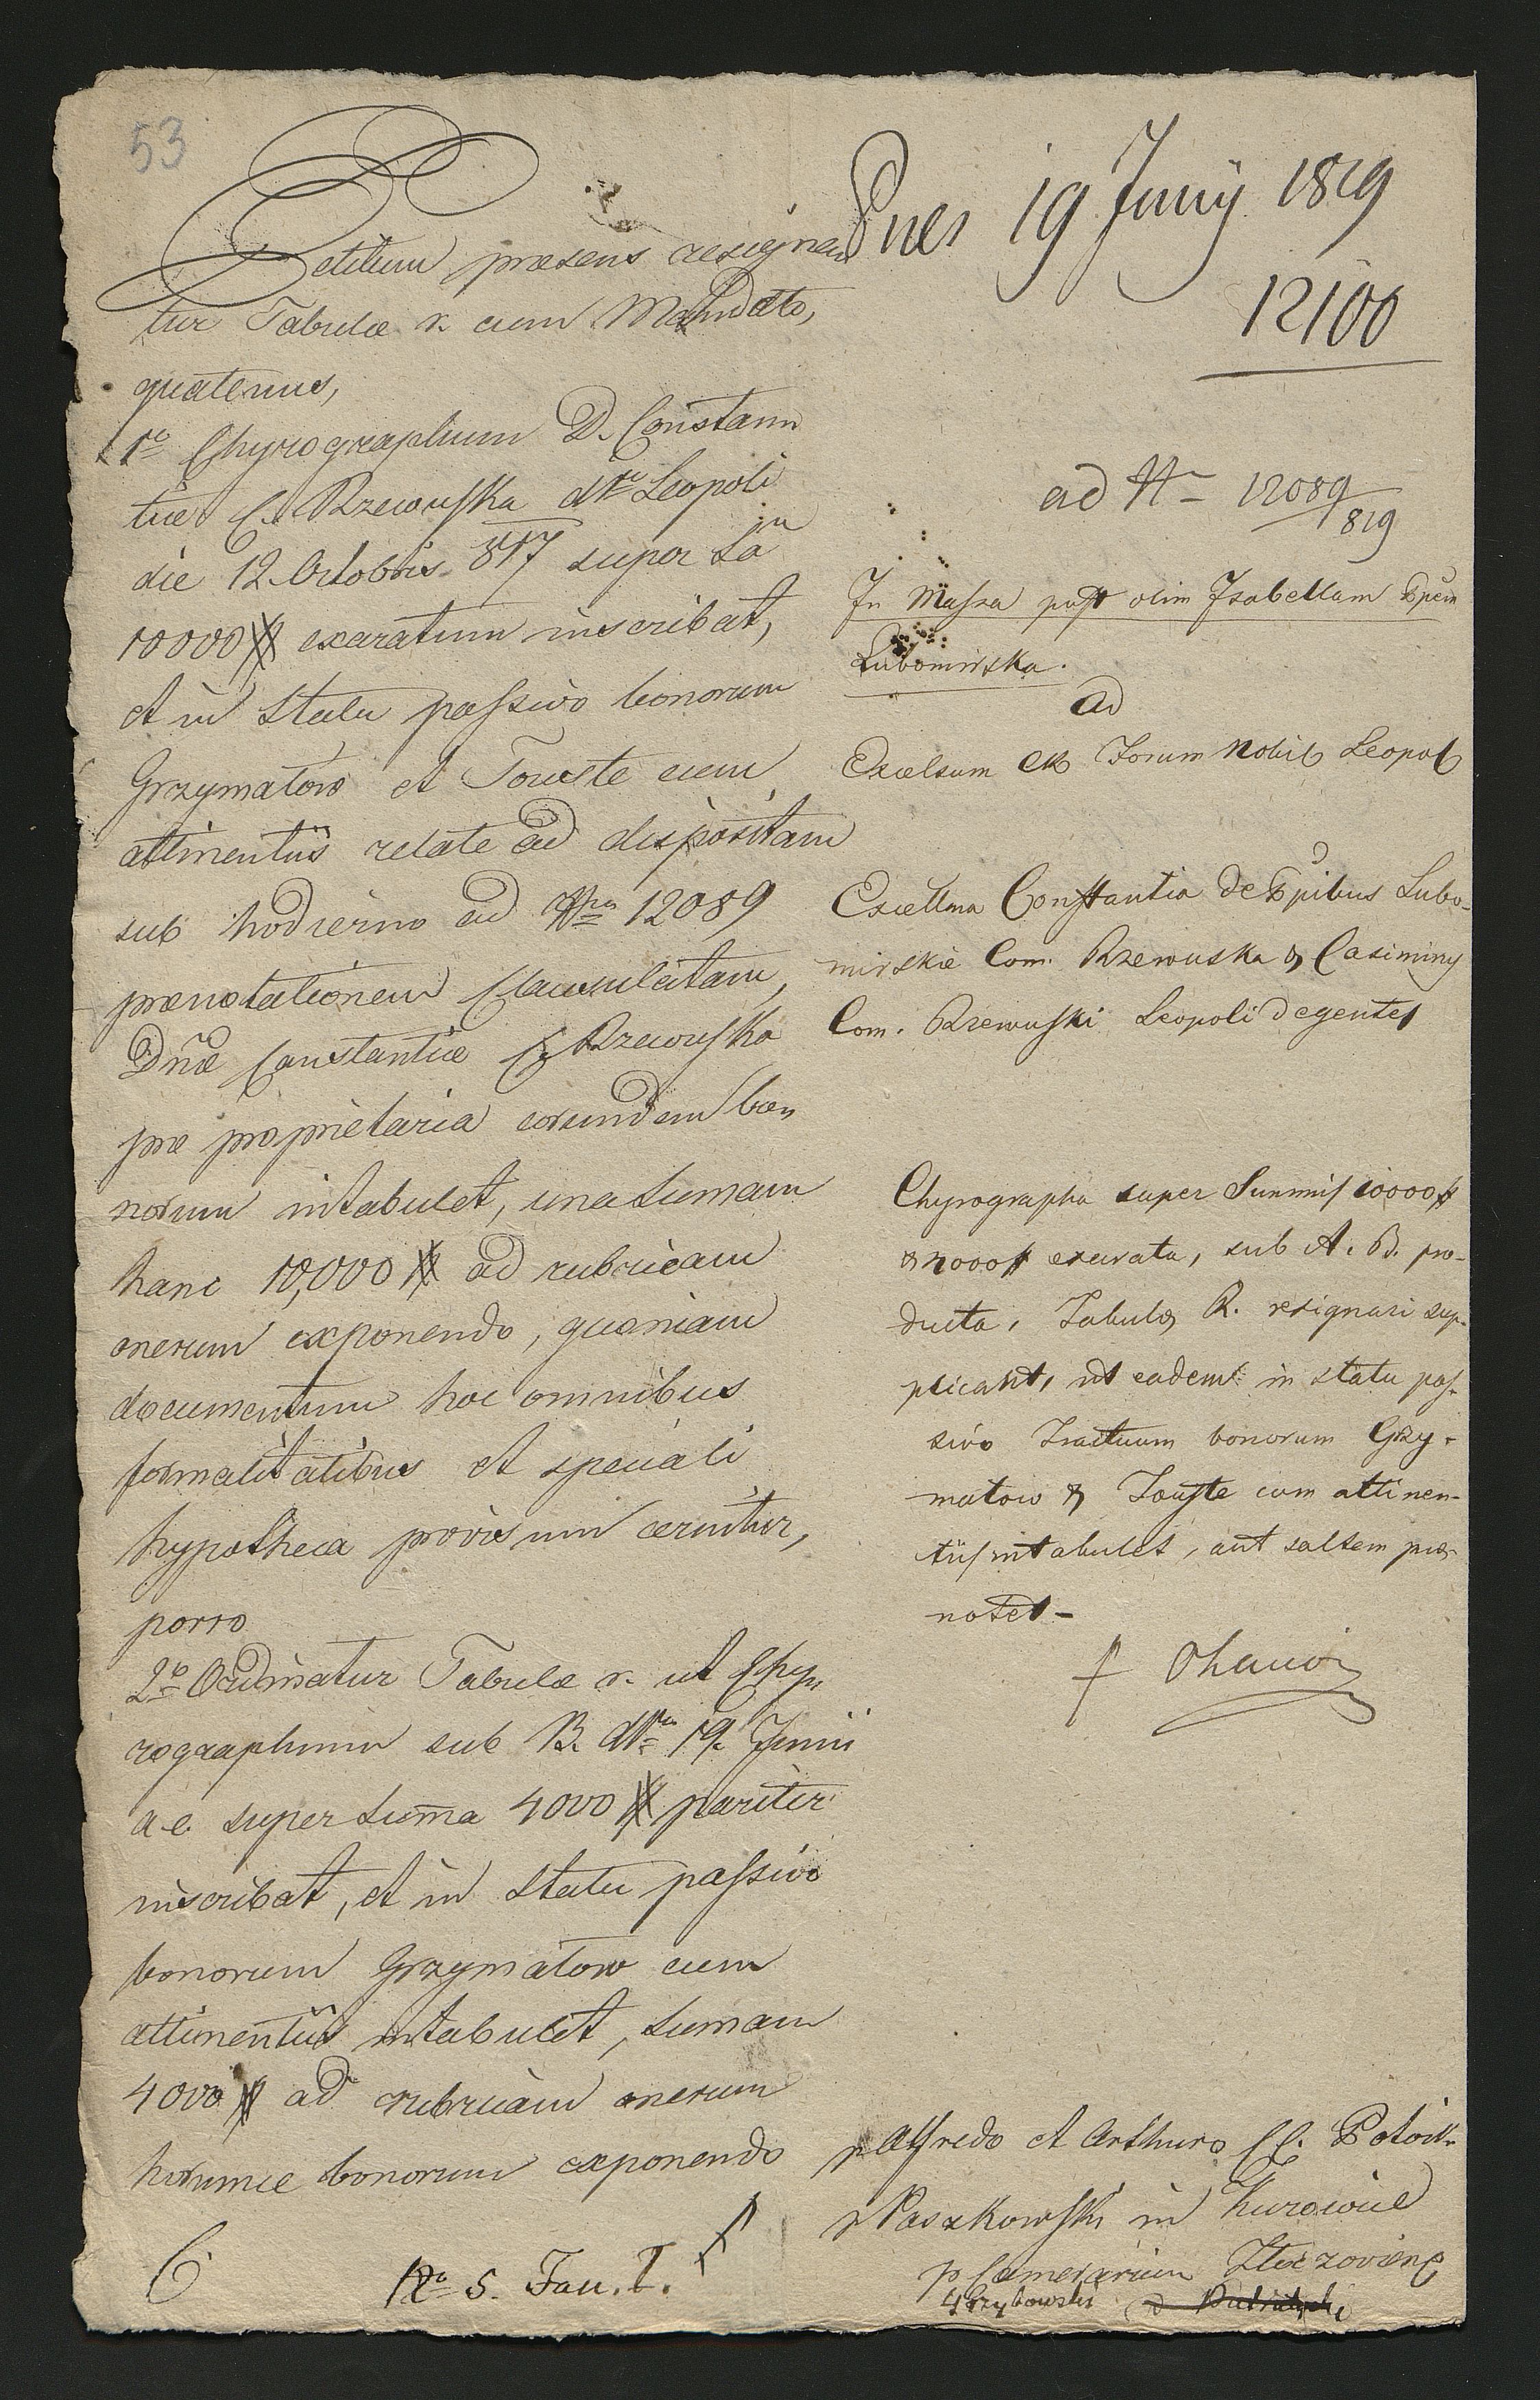 53
Petitum præsens resignea
tur Tabulæ r. cum Mandato,
quatenus,
1o Chyrographum D. Constann
tiæ C. Rzewuska dto Leopoli
die 12. Octobris 817 super Sa
10000 # exaratum inscribat,
et in Statu passivo bonorum
Grzymałow et Touste cum
attinentiis relate ad dispositam
sub hodierno ad Nrum 12089
prænotationem clausulatam,
Dnæ Constantiæ C. Rzewuska
præ proprietaria eorundem bo„
norum intabulet, una Sumam
hanc 10,000 # ad rubricam
onerum exponendo, quoniam
documentum hoc omnibus
formalitatibus et speciali
hypotheca provisum cernitur,
porro
2o Ordinatur Tabulæ r. ut Chy„
rographum sub B. dto 19. Junii
a.c. super Suma 4000 # pariter
inscribat, et in Statu passivo
bonorum Grzymałow cum
attinentiis intabulet, Sumam
4000 # ad rubricam onerum
horumce bonorum exponendo
No 5. Fau. I.
Pnes 19 Junij 1819
12100
ad N– 12089/819
In Massa post olim Isabellam Ppem
Lubomirska.
ad
Excelsum CR Forum Nobil Leopol
Excellma Constantia de Ppibus Lubo-
mirskie Com. Rzewuska & Casimiry
Com. Rzewuski Leopoli degentes
Chyrographa super Summis 10000 #
& 4000 # exarata, sub A. B. pro-
ducta, Tabulæ R. resignari sup-
plicant, ut eadem in statu pas-
sivo Tractuum bonorum Grzy-
małow & Touste cum attinen-
tiis intabulet, aut saltem præ-
notet –
p Alfredo et Arthuro CC. Potock
p Paszkowski in Kurowice
p Camerarium Złoczoviens
Grzybowski